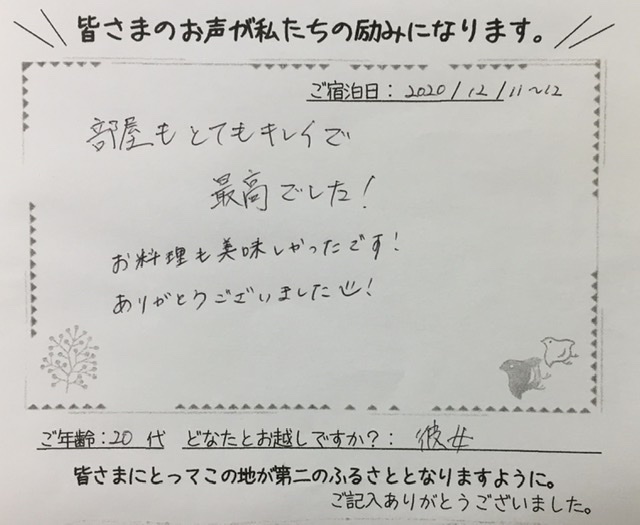 皆さまのお声が私たちの励みになります。
ご宿泊日：2020/12/11～12
部屋もとてもキレイで
最高でした！
お料理も美味しかったです！
ありがとうございました！
ご年齢：20代 どなたとお越しですか？：彼女
皆さまにとってこの地が第二のふるさととなりますように。
ご記入ありがとうございました。